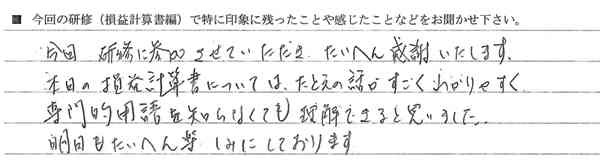 ■ 今回の研修（損益計算書編）で特に印象に残ったことや感じたことなどをお聞かせ下さい。
今回 研修に参加させていただき、たいへん感謝いたします。
本日の損益計算書については、たとえの話がすごくわかりやすく
専門的用語を知らなくても理解できると思いました。
明日もたいへん楽しみにしております